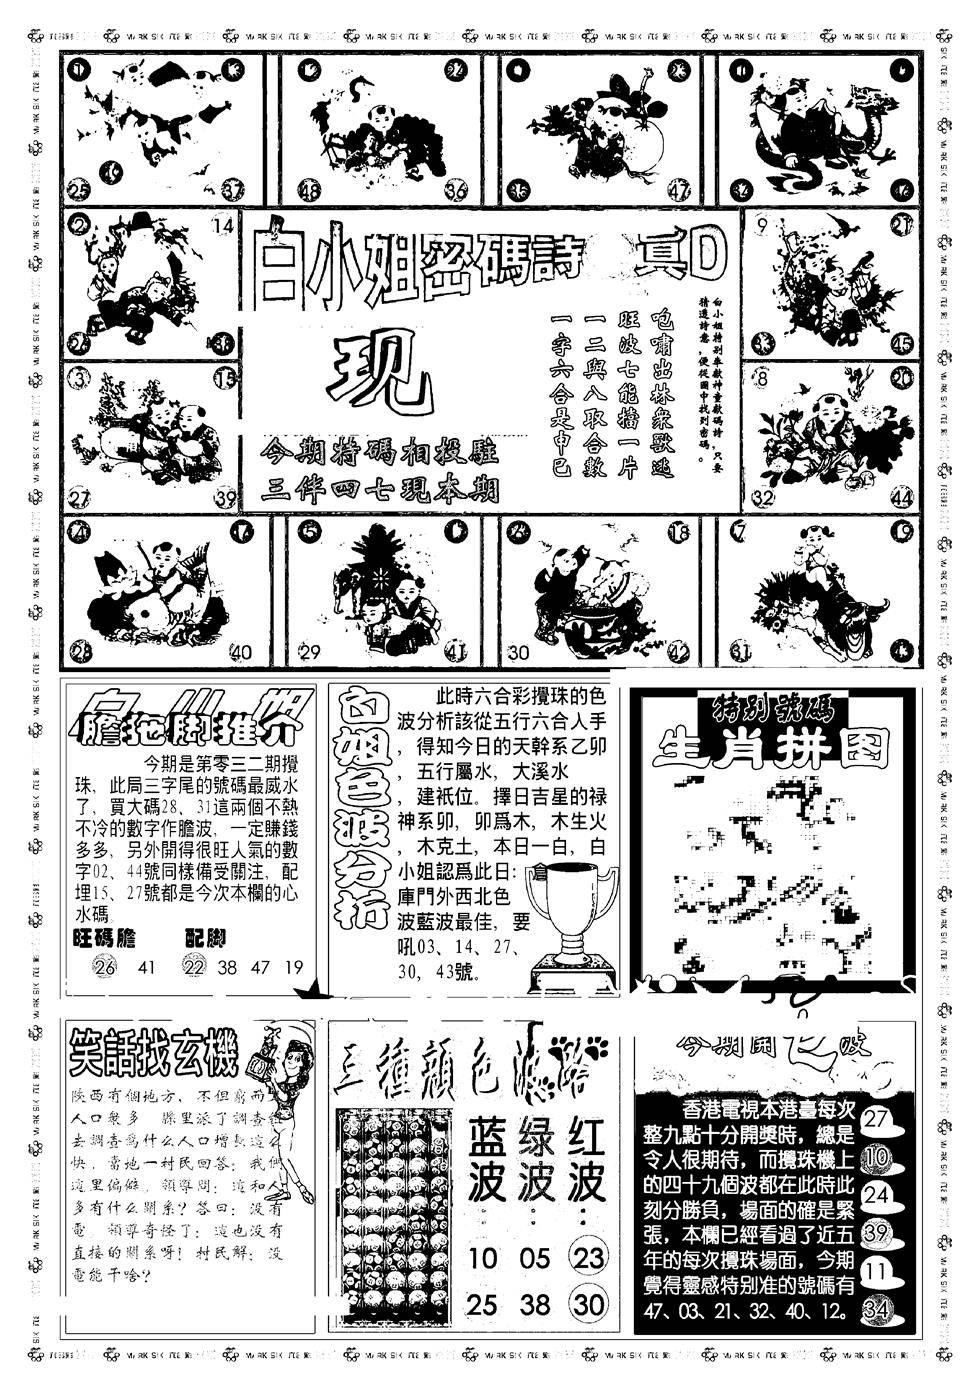 白小姐密碼詩
真D
现
今期特碼相投駐
三伴四七現本期
白小姐特别奉獻神童獻碼詩,只要
猜透詩意,便從圖中找到密碼。
咆嘯出林衆獸逃
旺波七能擋一片
一二與八取合數
一字六合是申巳
25
37
48
36
35
47
2
14
9
21
45
3
15
8
20
27
39
32
44
28
40
5
29
41
18
30
42
7
19
31
膽拖脚推介
今期是第零三二期攪
珠，此局三字尾的號碼最威水
了，買大碼28、31這兩個不熱
不冷的數字作膽波，一定賺錢
多多，另外開得很旺人氣的數
字02、44號同樣備受關注，配
埋15、27號都是今次本欄的心
水碼
旺碼膽 配脚
26 41 22 38 47 19
白姐色波分析
此時六合彩攪珠的色
波分析該從五行六合人手
，得知今日的天幹系乙卯
，五行屬水，大溪水
，建祇位。擇日吉星的禄
神系卯，卯爲木，木生火
，木克土，本日一白，白
小姐認爲此日：倉
庫門外西北色
波藍波最佳，要
吼03、14、27、
30，43號。
特别號碼
生肖拼图
笑話找玄機
陝西有個地方，不但窮而
人口衆多 縣里派了調查組
去調查爲什么人口增長這么
快，當地一村民回答：我們
這里偏僻，領導問：這和人
多有什么關系？答曰：没有
電 領導奇怪了：這也没有
直接的關系呀！村民解：没
電能干啥？
三種顔色波路
蓝波： 绿波： 红波：
10 05 23
25 38 30
今期開 波
香港電視本港臺每次
整九點十分開奬時，總是
令人很期待，而攪珠機上
的四十九個波都在此時此
刻分勝負，場面的確是緊
張，本欄已經看過了近五
年的每次攪珠場面，今期
覺得靈感特别准的號碼有
47、03、21、32、40、12。
27
10
24
39
11
34